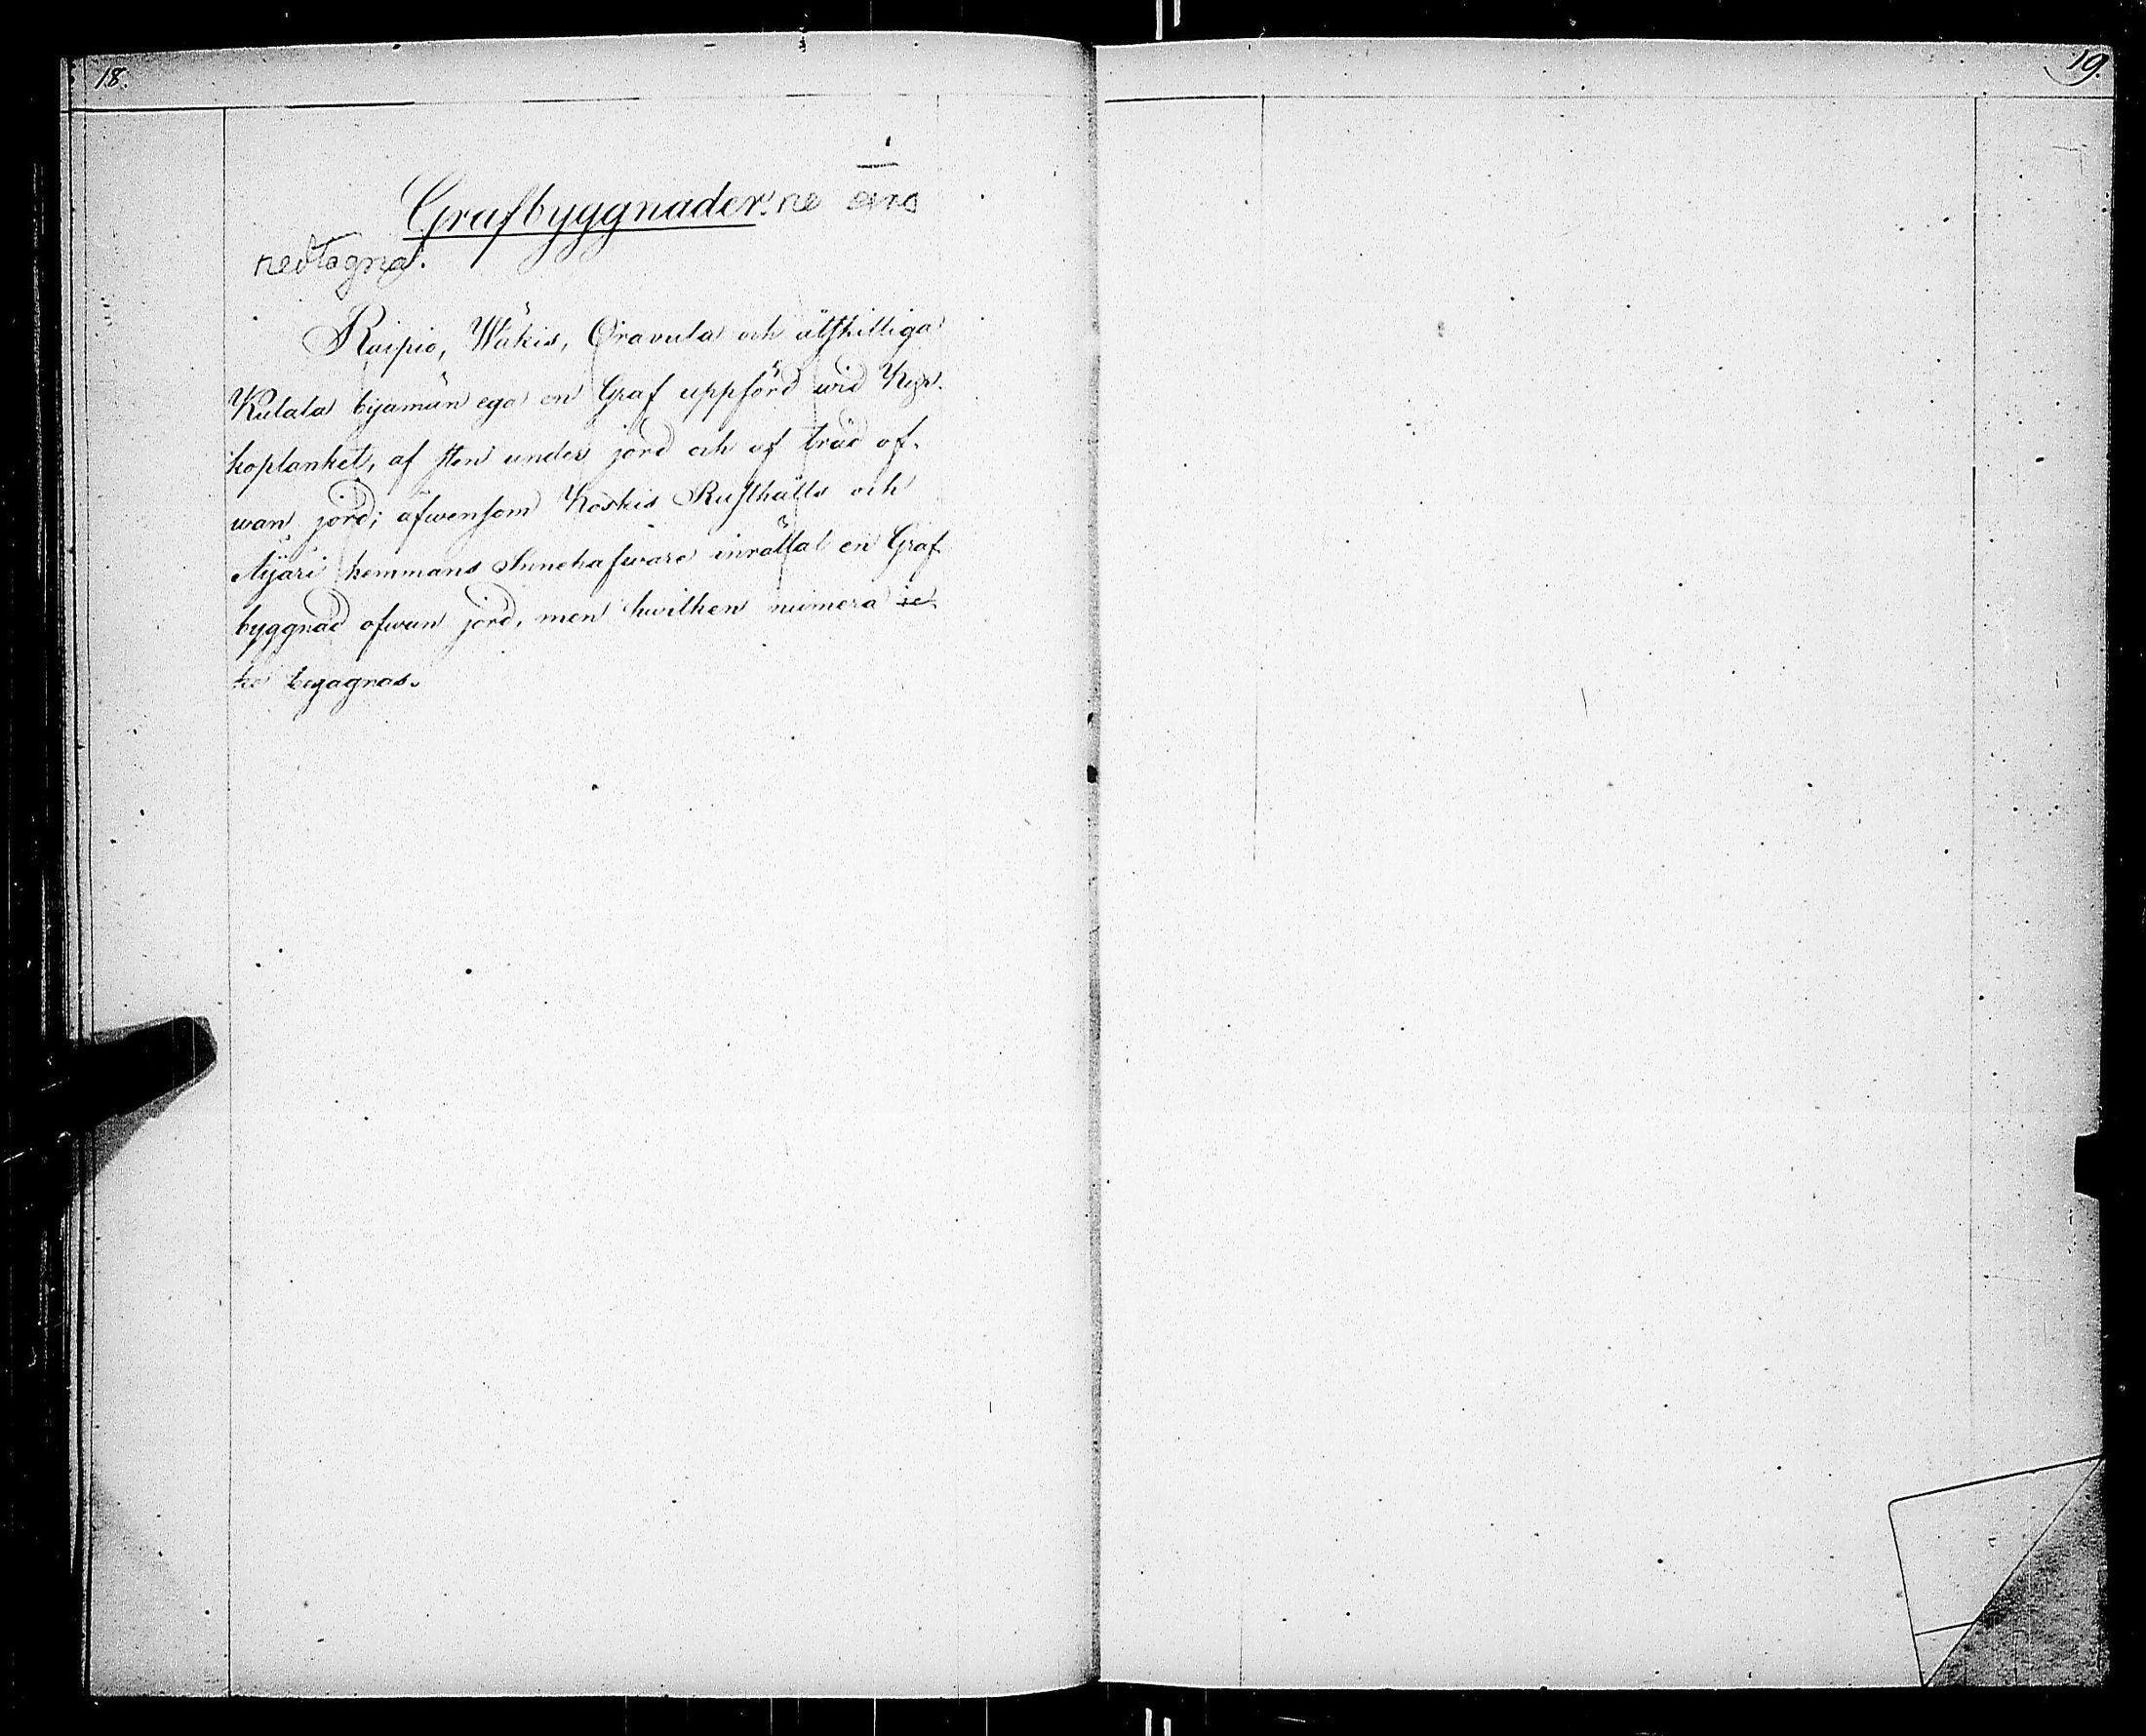 18.
19.
Grafbyggnader.ne äro
nedtagna.
Raipio, Wäkis, Oravula och åtskilliga
Kulala byamän ega en Graf uppförd wid Kyr-
koplanket, af sten under jord och af träd of-
wan jord; äfwensom Koskis Rusthålls och
Äijäri hemmans Innehafware inrättat en Graf-
byggnad ofwan jord, men hwilken numera ic-
ke begagnas.